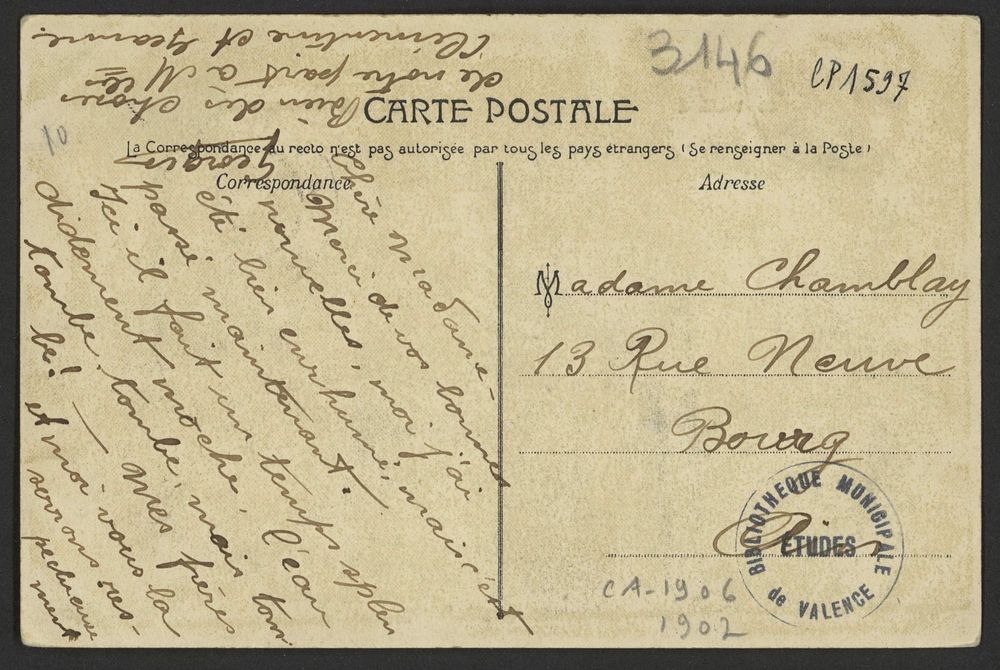 3146
CP1597
CARTE POSTALE
La Correspondance au recto n'est pas autorisée par tous les pays étrangers (Se renseigner à la Poste)
10
Correspondance
Adresse
Chère Madame
Merci de vos bonnes
nouvelles, moi j'ai
été bien enrhumé, mais c'est
passé maintenant.
Ici il fait un temps splen
didement moche! l'eau
tombe, tombe, mais tom
be! — Mes frères
et moi vous la
serrons res-
pectueuse
ment
Georges
Bien des choses
de notre part à Mlles
Clémentine et Jeanne
Madame Chamblay
13 Rue Neuve
Bourg
Ain
BIBLIOTHEQUE MUNICIPALE
ETUDES
de VALENCE
CA-1906
1902